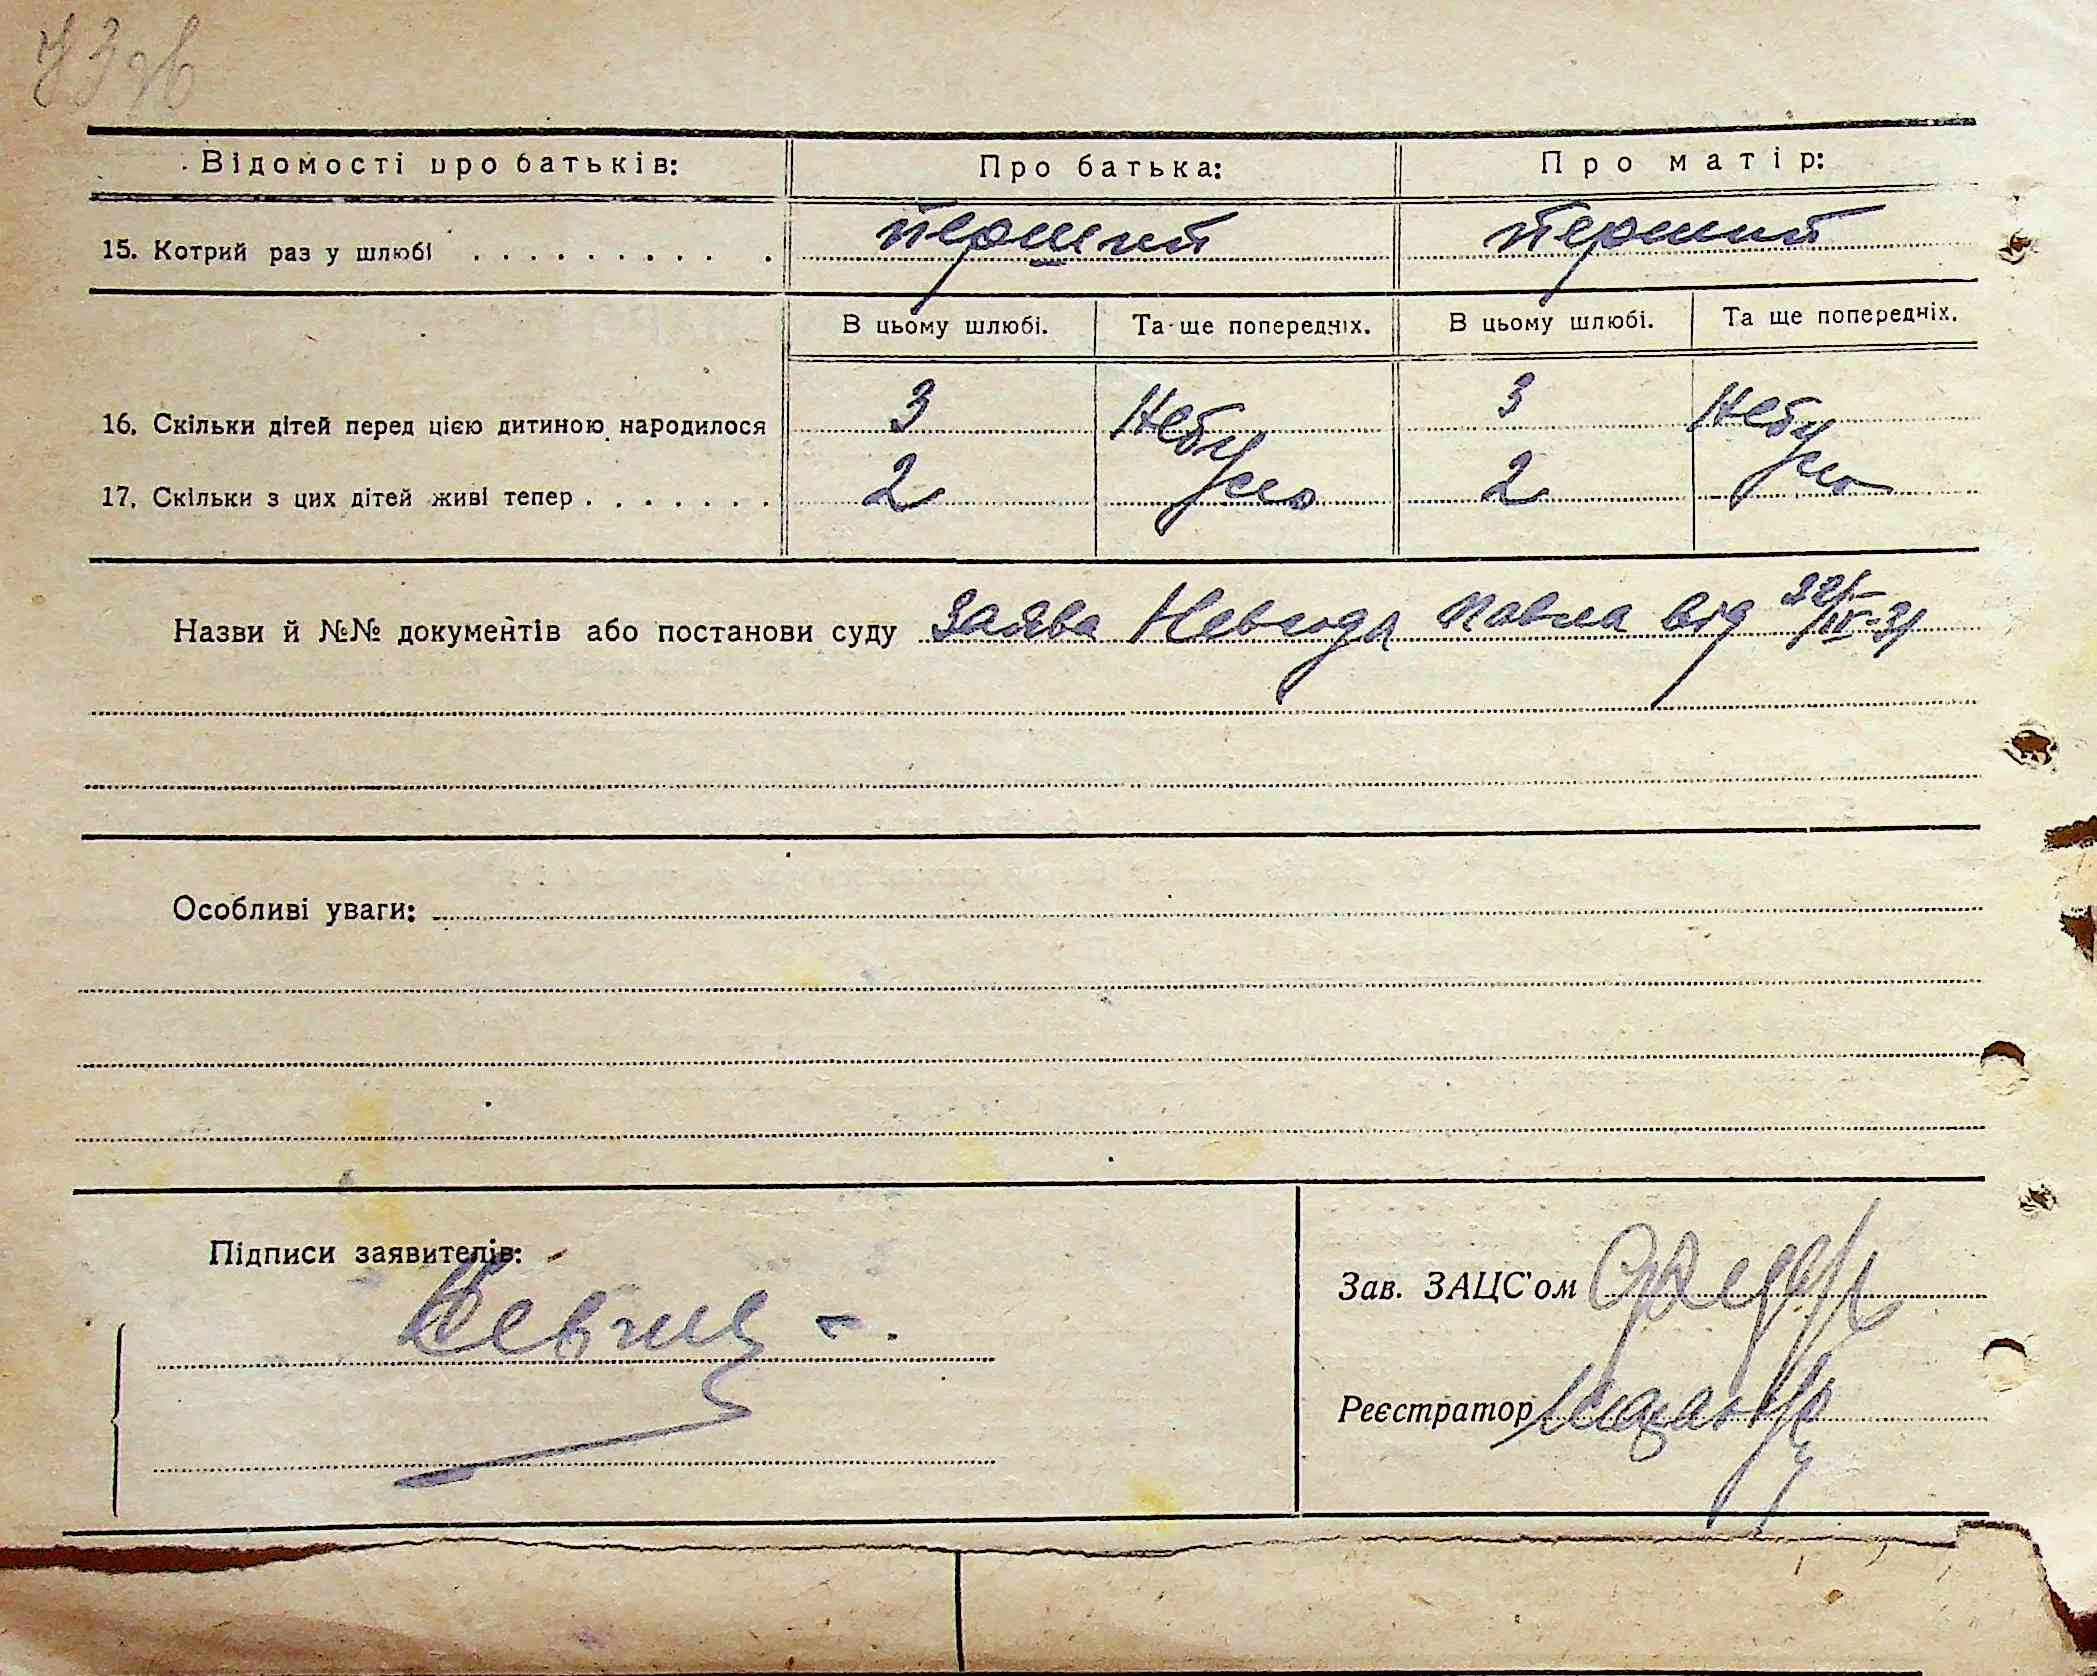 Відомості про батьків: Про батька: Про матір:
15. Котрий раз у шлюбі . . . . . . . . . . . перший перший
В цьому шлюбі. Та ще попередніх. В цьому шлюбі. Та ще попередніх.
16. Скільки дітей перед цією дитиною народилося 3 небу 3 небу
17. Скільки з цих дітей живі тепер . . . . . . . 2 ло 2 ло
Назви й №№ документів або постанови суду Заява Невгода Павла від 22/IV-31
Особливі уваги:
Підписи заявителів:
Зав. ЗАЦС'ом
Реєстратор